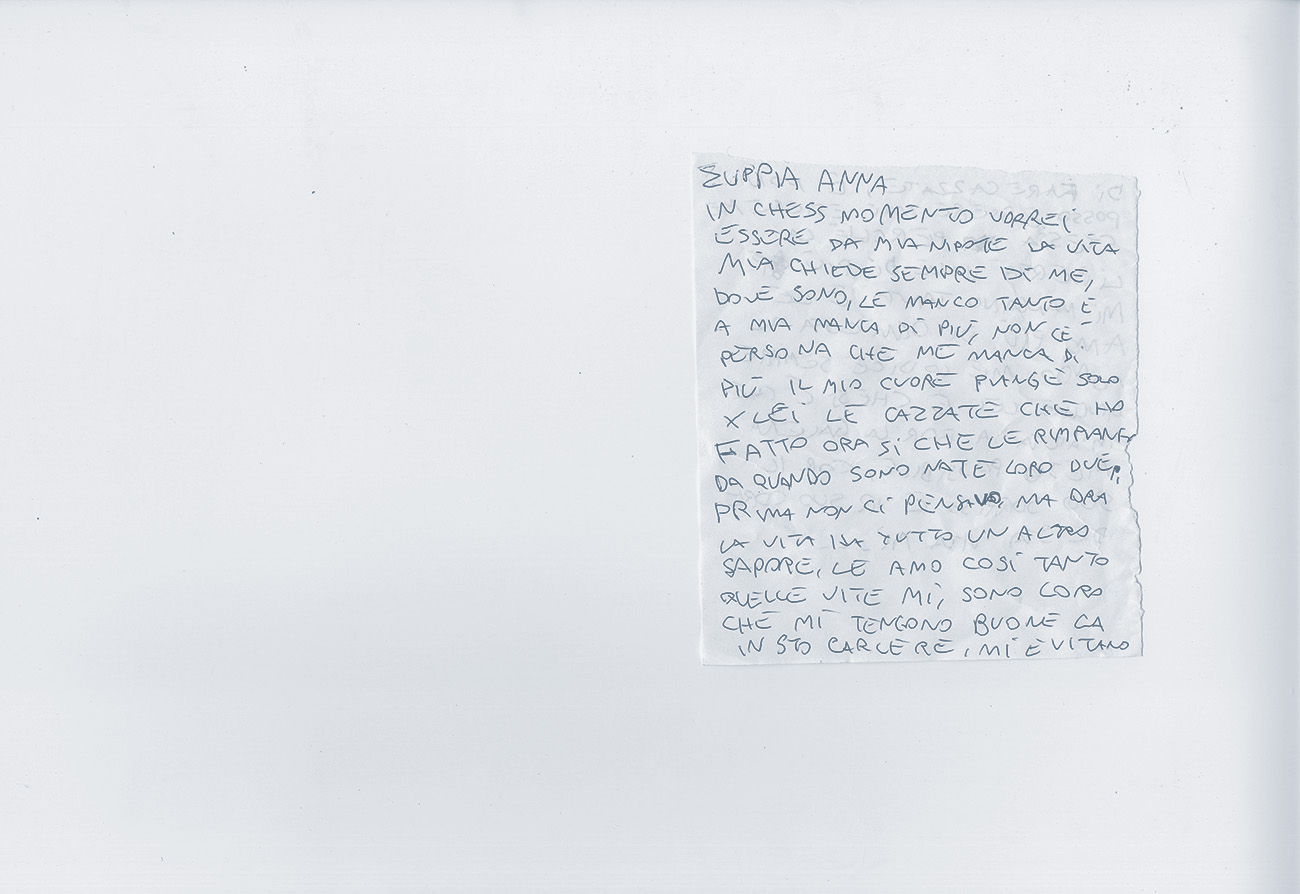 ZUPPIA ANNA
IN CHESS MOMENTO VORREI
ESSERE DA MIA NIPOTE LA VITA
MIA CHIEDE SEMPRE DI ME,
DOVE SONO, LE MANCO TANTO E
A MIA MANCA DI PIÙ, NON CE
PERSONA CHE ME MANCA DI
PIÙ IL MIO CUORE PIANGE SOLO
X LEI LE CAZZATE CHE HO
FATTO ORA SI CHE LE RIMPIANGO
DA QUANDO SONO NATE LORO DUE,
PRIMA NON CI PENSAVO, MA ORA
LA VITA HA TUTTO UN ALTRO
SAPORE, LE AMO COSÌ TANTO
QUELLE VITE MÌ, SONO LORO
CHE MI TENGONO BUONE CA
IN STO CARCERE, MI EVITANO